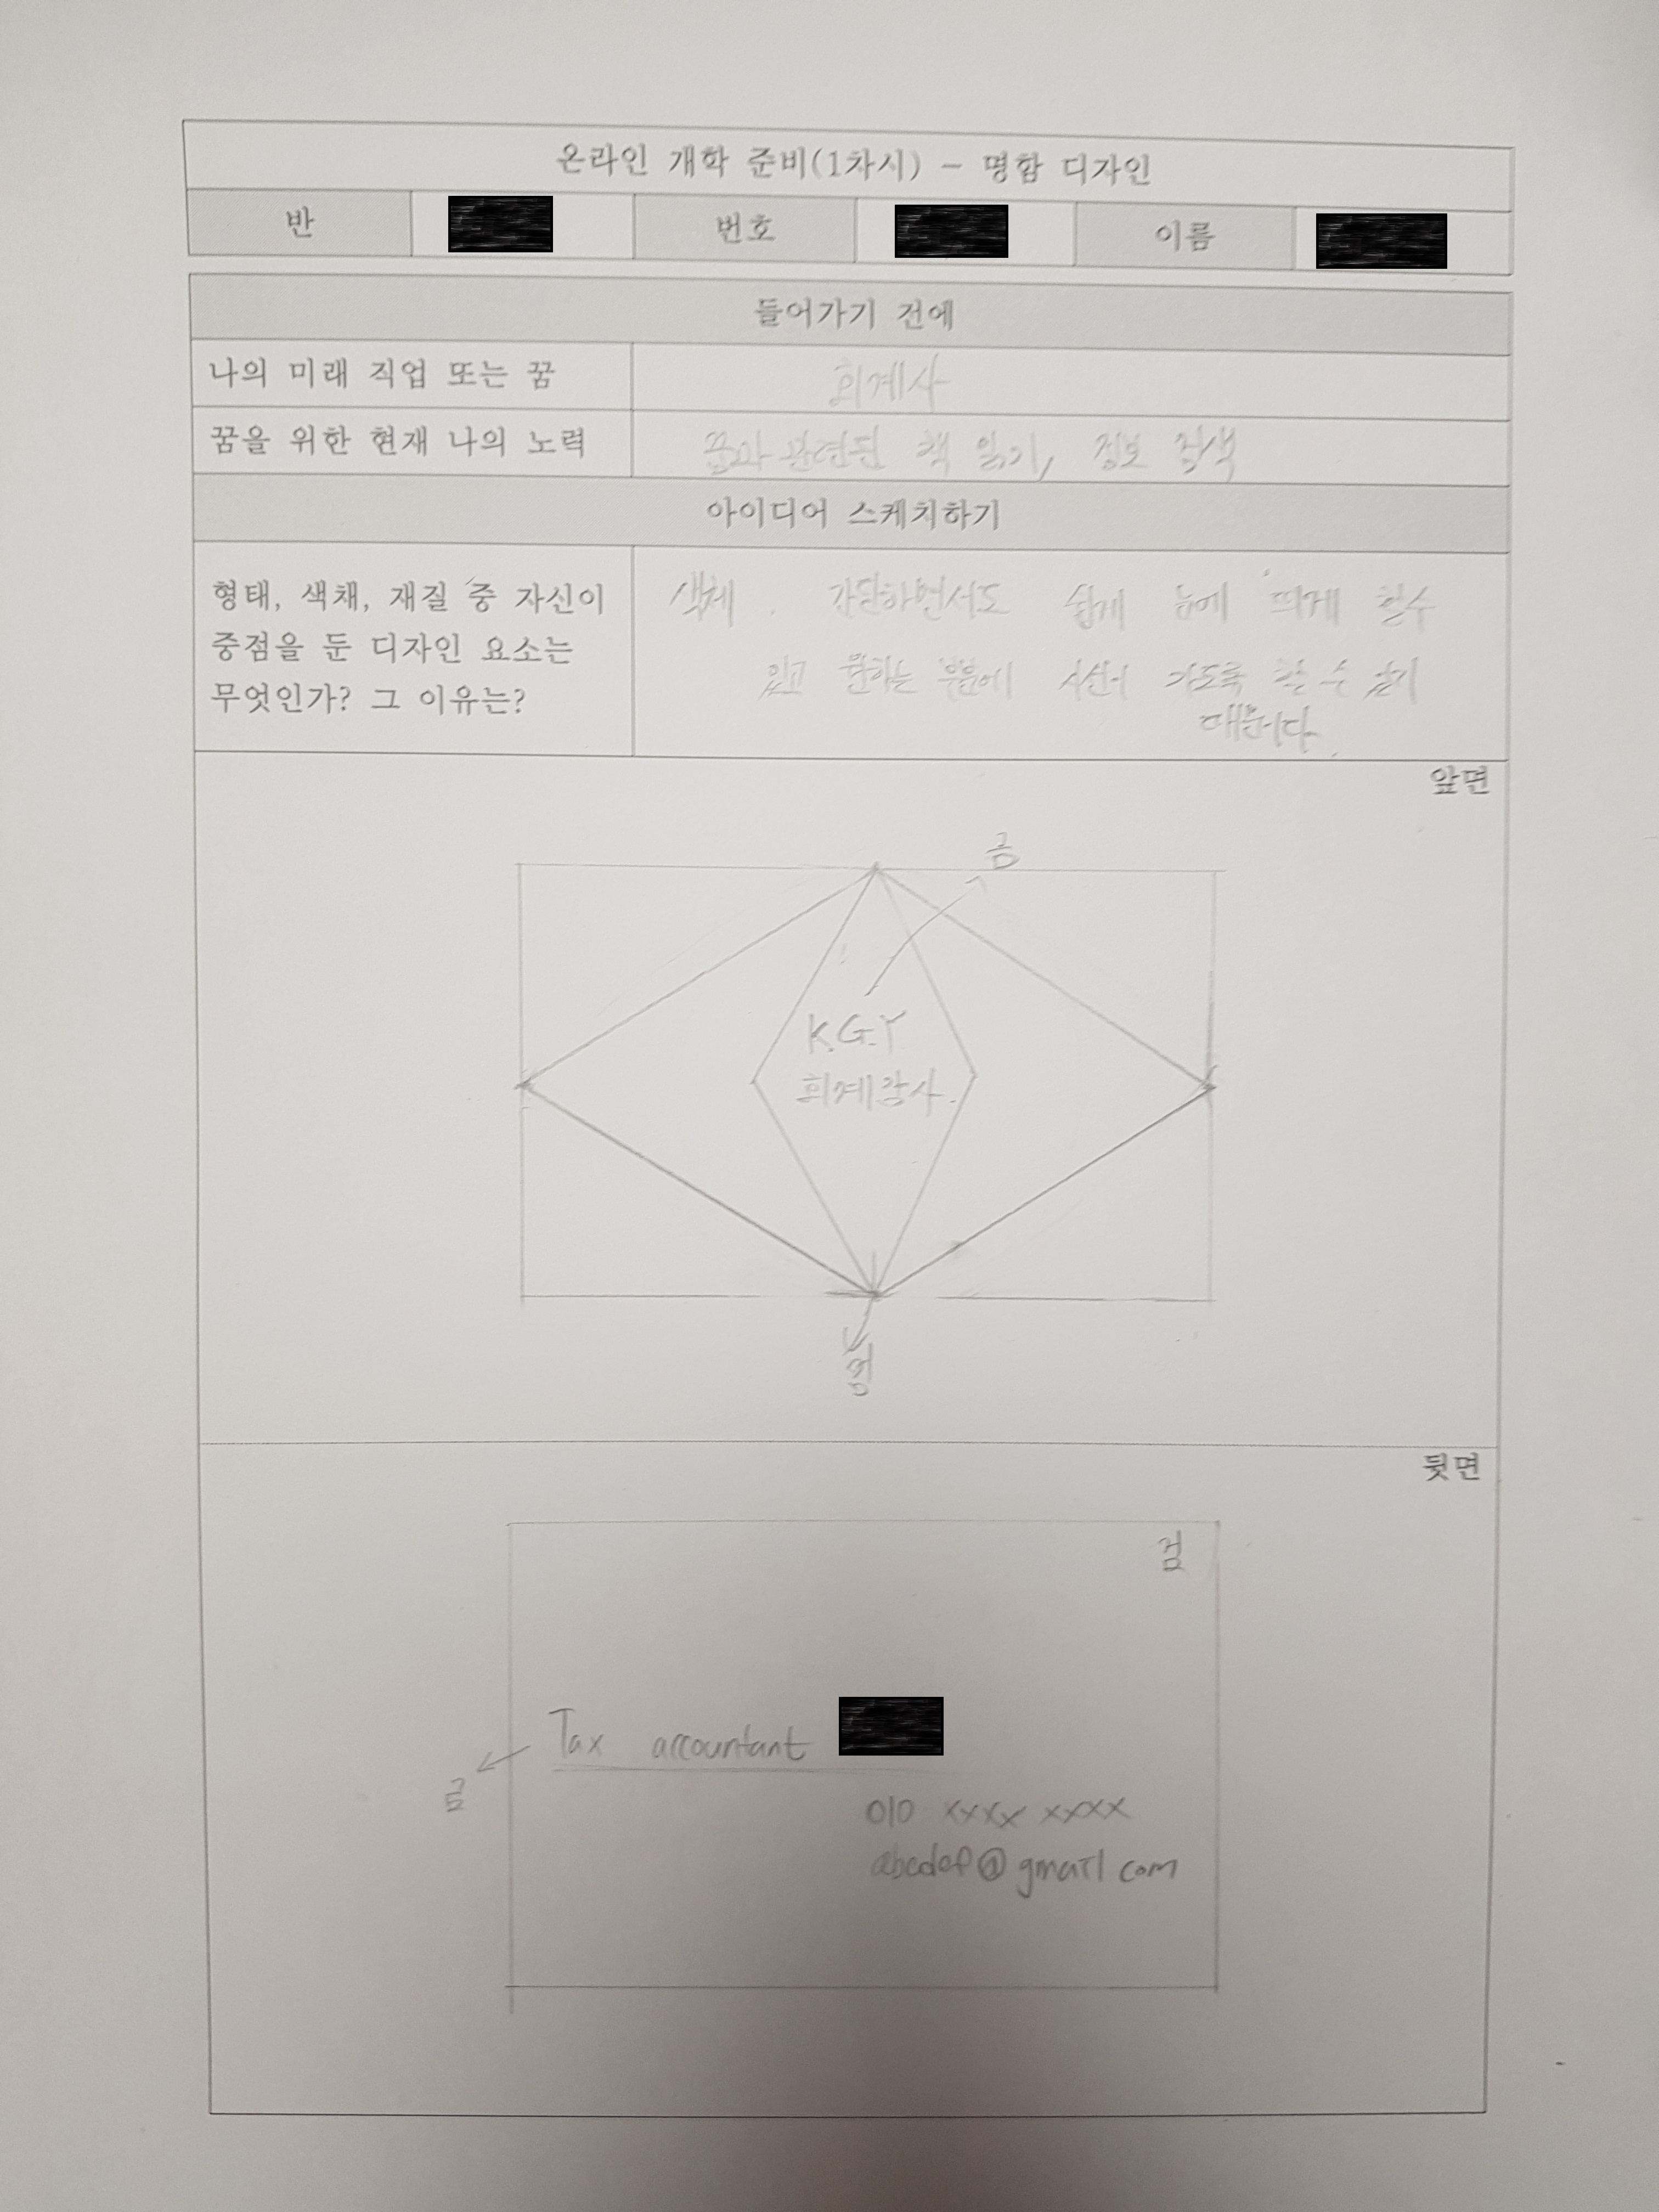 온라인 개학 준비(1차시) - 명함 디자인
반 번호 이름
들어가기 전에
나의 미래 직업 또는 꿈 회계사
꿈을 위한 현재 나의 노력 꿈과 관련된 책 읽기, 정보 검색
아이디어 스케치하기
형태, 색채, 재질 중 자신이
중점을 둔 디자인 요소는
무엇인가? 그 이유는?
색체. 간단하면서도 쉽게 눈에 띄게 할수
있고 원하는 부분에 시선이 가도록 할 수 있기
때문이다.
앞면
금
K.G.Y
회계감사.
검
뒷면
검
Tax accountant
금
010 xxxx xxxx
abcdef@gmail com